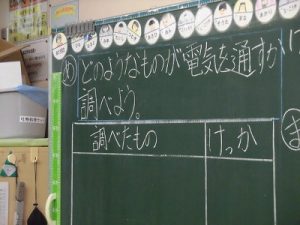 め どのようなものが電気を通すか
調べよう。
調べたもの けっか
ま